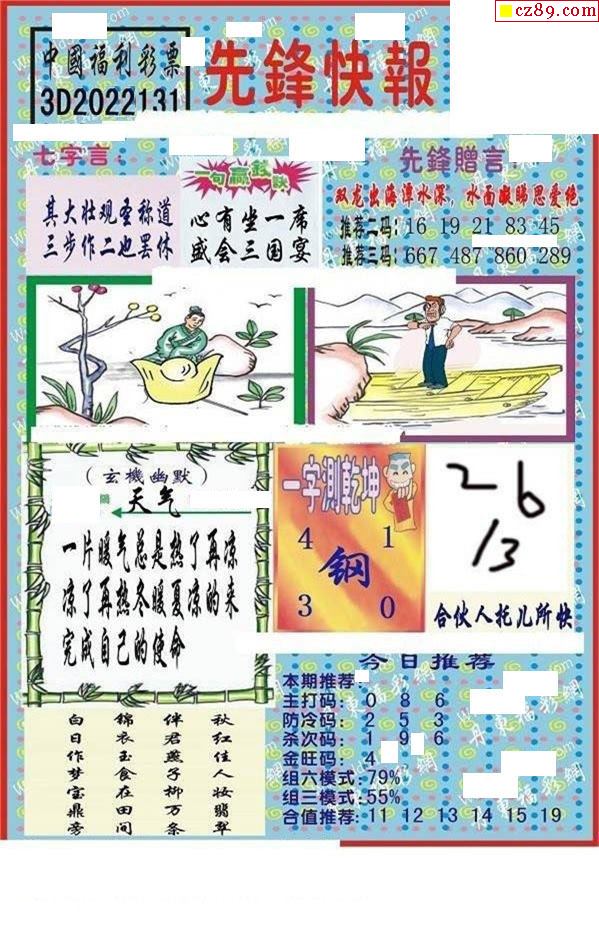 cz89.com
中國福利彩票
3D2022131
先鋒快報
七字言：
其大壮观圣称道
三步作二也罢休
一句赢錢訣
心有坐一席
盛会三国宴
先鋒贈言：
双龙出海潭水深，水面凝睇思爱绝
推荐二码：16 19 21 83 45
推荐三码：667 487 860 289
（玄機幽默）
天气
一片暖气总是热了再凉
凉了再热冬暖夏凉的来
完成自己的使命
一字测乾坤
4 1
鋼
3 0
26
13
合伙人托儿所快
今日推荐
本期推荐：
主打码：0 8 6
防冷码：2 5 3
杀次码：1 9 6
金旺码：4
组六模式：79%
组三模式：55%
合值推荐：11 12 13 14 15 19
秋红佳人妆翡翠
伴君燕子柳万条
锦衣玉食在田间
白日作梦宝鼎旁
丹東福彩網